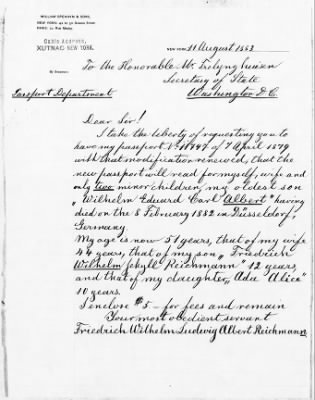 WILLIAM BREHMAN & SONS,
Cable Address,
XUTNAC, NEW YORK.
NEW YORK 11 August 1883
To the Honorable Mr. Frelynghuisen
Secretary of State
Passport Department Washington D.C.
Dear Sir!
I take the liberty of requesting you to
have my passport of 7 April 1879
with that modification renewed, that the
new passport will read for myself, wife and
only two minor children, my oldest son
„Wilhelm Eduard Carl Albert" having
died on the 8 February 1882 in Düsseldorf,
Germany.
My age is now 51 years, that of my wife
44 years, that of my son „Friedrich
Wilhelm Jekyll Reichmann" 12 years,
and that of my daughter „Ada Alice"
10 years.
I enclose $5 — for fees and remain
Your most obedient servant
Friedrich Wilhelm Ludwig Albert Reichmann